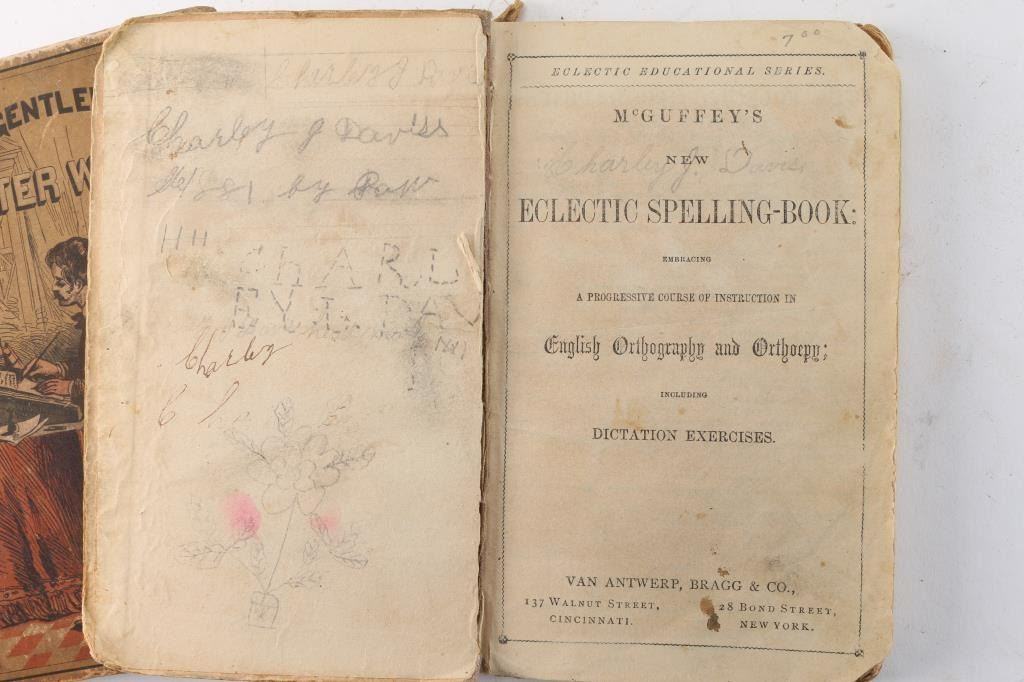 GENTLE
TER W
Charley J Davis
Charley J Daviss
1881 by Paw
1111
ChARL
EY J. DAV
Charley
C
7 00
ECLECTIC EDUCATIONAL SERIES.
McGUFFEY'S
NEW
Charley J. Davis
ECLECTIC SPELLING-BOOK:
EMBRACING
A PROGRESSIVE COURSE OF INSTRUCTION IN
English Orthography and Orthoepy;
INCLUDING
DICTATION EXERCISES.
VAN ANTWERP, BRAGG & CO.,
137 WALNUT STREET,
CINCINNATI.
28 BOND STREET,
NEW YORK.